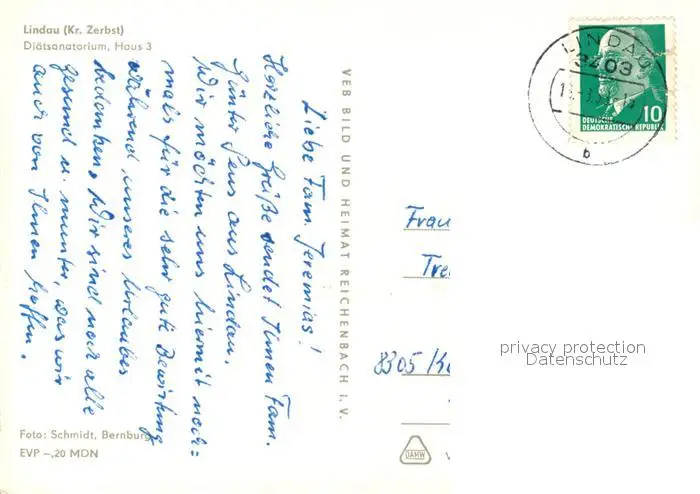 Lindau (Kr. Zerbst)
Diätsanatorium, Haus 3
Liebe Fam. Jeremias!
Herzliche Grüße sendet Ihnen Fam.
Günter Sens aus Lindau.
Wir möchten uns hiermit noch=
mals für die sehr gute Bewirtung
während unseres Urlaubes
bedanken. Wir sind noch alle
gesund u. munter, was wir
auch von Ihnen hoffen.
Foto: Schmidt, Bernburg
EVP –,20 MDN
VEB BILD UND HEIMAT REICHENBACH i. V.
LINDAU
3403
b
10
DEUTSCHE
DEMOKRATISCHE REPUBLIK
Frau
Tre
8305 / Kö
privacy protection
Datenschutz
DAMW
V